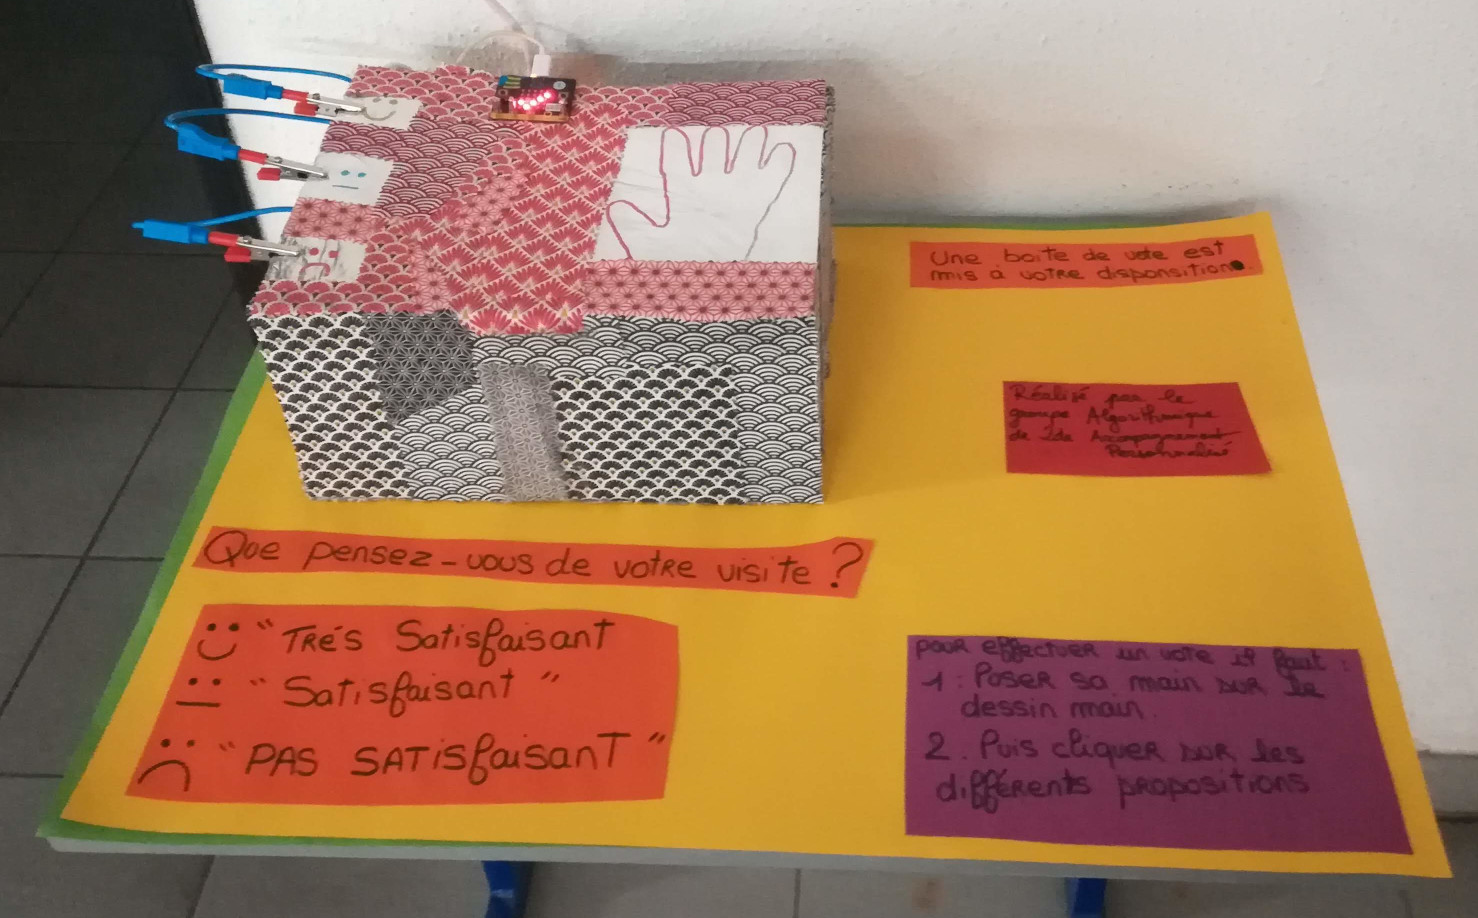 Une boite de vote est
mis à votre disponsition.
Réalisé par le
groupe Algorithmique
de 2de Accompagnement
Personnalisé
Que pensez-vous de votre visite ?
"TRés Satisfaisant
"Satisfaisant"
"PAS SATisfaisanT"
pour effectuer un vote il faut :
1 : Poser sa main sur le
dessin main.
2. Puis cliquer sur les
différents propositions